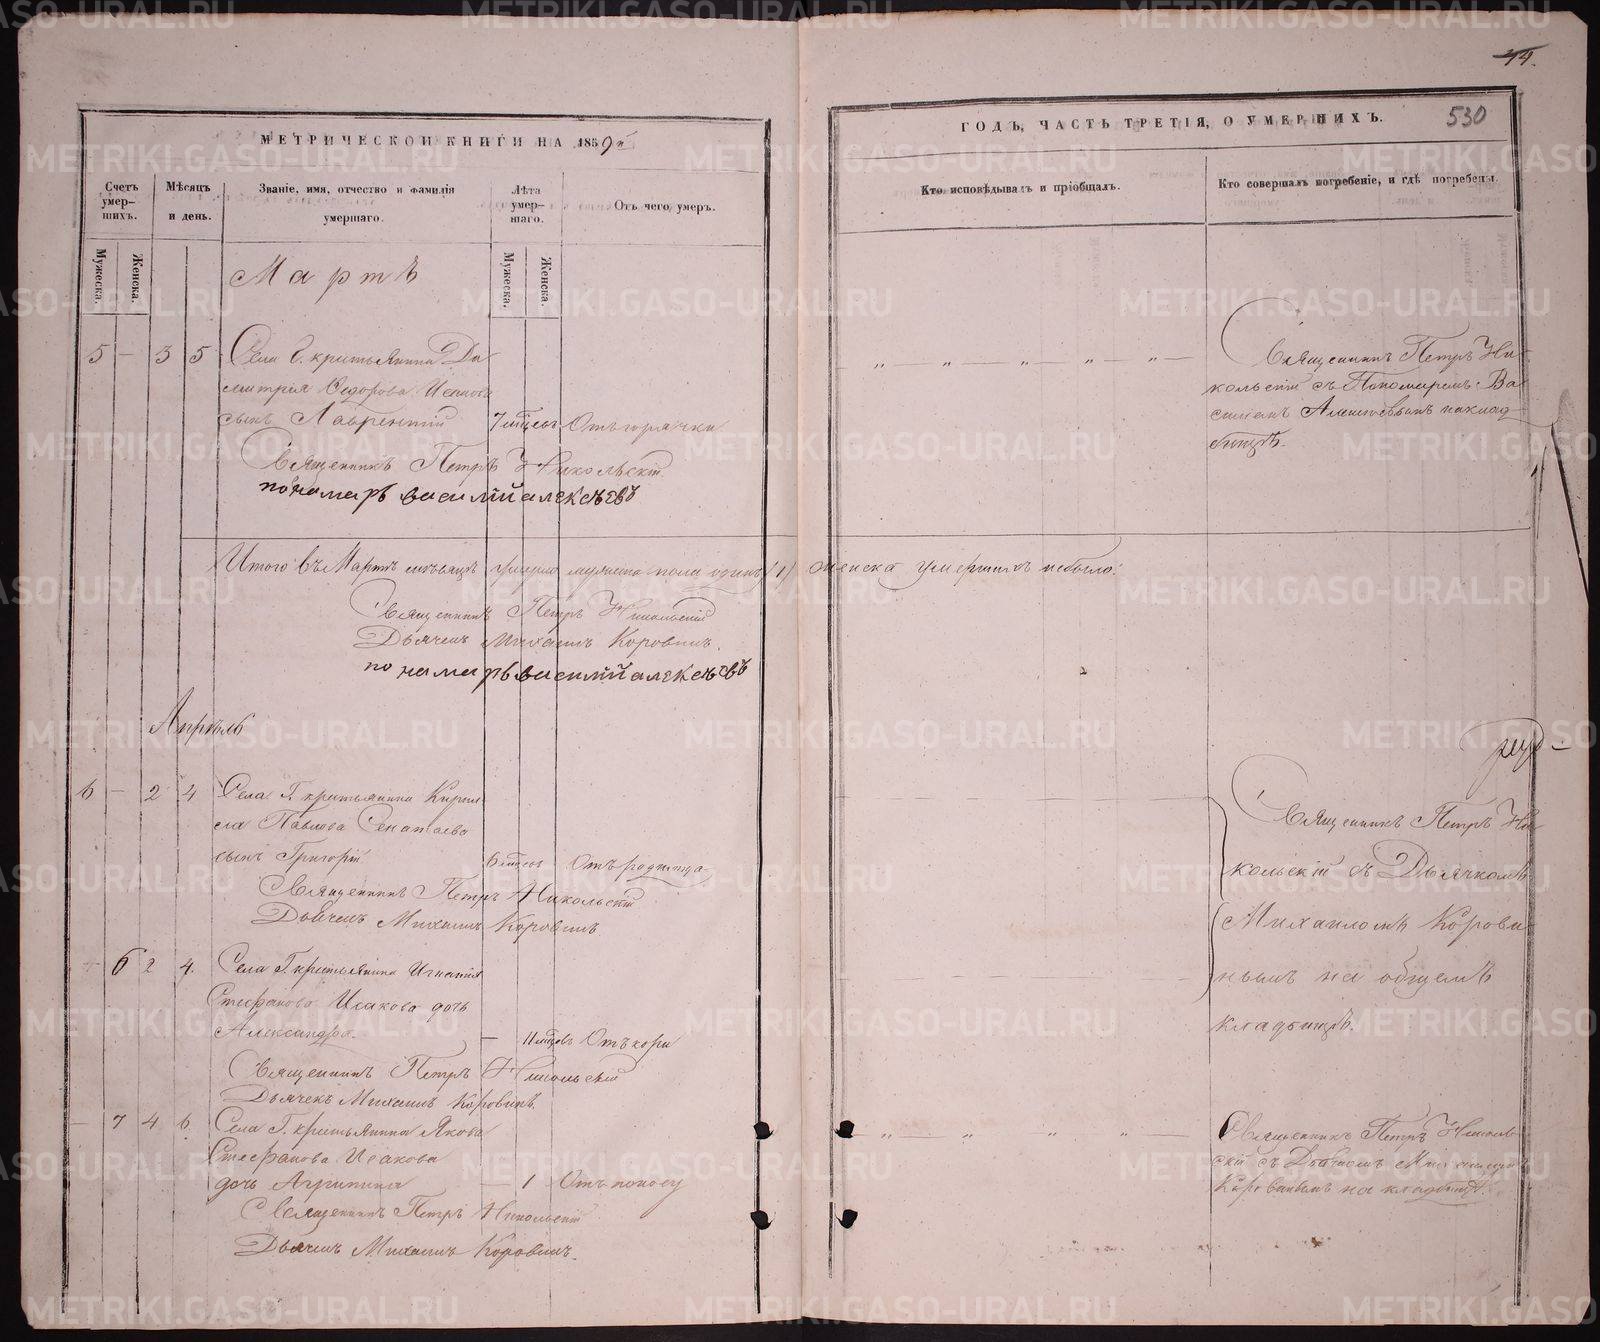 44.
530
МЕТРИЧЕСКОЙ КНИГИ НА 1859й
ГОДЪ, ЧАСТЬ ТРЕТІЯ, О УМЕРШИХЪ.
Счетъ умер-
шихъ.
Мѣсяцъ
и день.
Званіе, имя, отчество и фамилія
умершаго.
Лѣта
умер-
шаго.
Отъ чего умер.
Кто исповѣдывалъ и пріобщалъ.
Кто совершалъ погребеніе, и гдѣ погребены.
Мужеска.
Женска.
Мужеска.
Женска.
Мартъ
5 — 3 5 Села Г. крестьянина Ди
митрія Ѳедорова Исакова
сынъ Лаврентій 7 мѣсец Отъ горячки
Священникъ Петръ Никольскій
пономарь василий алексѣевъ
Священникъ Петръ Ни-
кольскій съ Пономаремъ Ва
силіемъ Алексѣевымъ на клад-
бищѣ.
Итого въ Мартѣ мѣсяцѣ умерло мужеска пола одинъ (1) женска умершихъ небыло.
Священникъ Петръ Никольскій
Дьячекъ Михаилъ Коровинъ.
пономарь василий алексѣевъ
Апрѣль
6 — 2 4 Села Г. крестьянина Кирил-
ла Павлова Сенатаева
сынъ Григорій 6 мѣсец Отъ родимца
Священникъ Петръ Никольскій
Дьячекъ Михаилъ Коровинъ
Священникъ Петръ Ни
кольскій съ Дьячкомъ
Михаиломъ Корови
нымъ на общемъ
кладбищѣ.
— 6 2 4. Села Г. крестьянина Игнатія
Стефанова Исакова дочь
Александра. — 11 мѣсцовъ Отъ кори
Священникъ Петръ Никольскій
Дьячекъ Михаилъ Коровинъ.
— 7 4 6 Села Г. крестьянина Якова
Стефанова Исакова
дочь Агрипина — 1 Отъ поносу
Священникъ Петръ Никольскій
Дьячекъ Михаилъ Коровинъ.
Священникъ Петръ Николь-
скій съ Дьячкомъ Михаиломъ
Коровинымъ на кладбищѣ.
METRIKI.GASO-URAL.RU